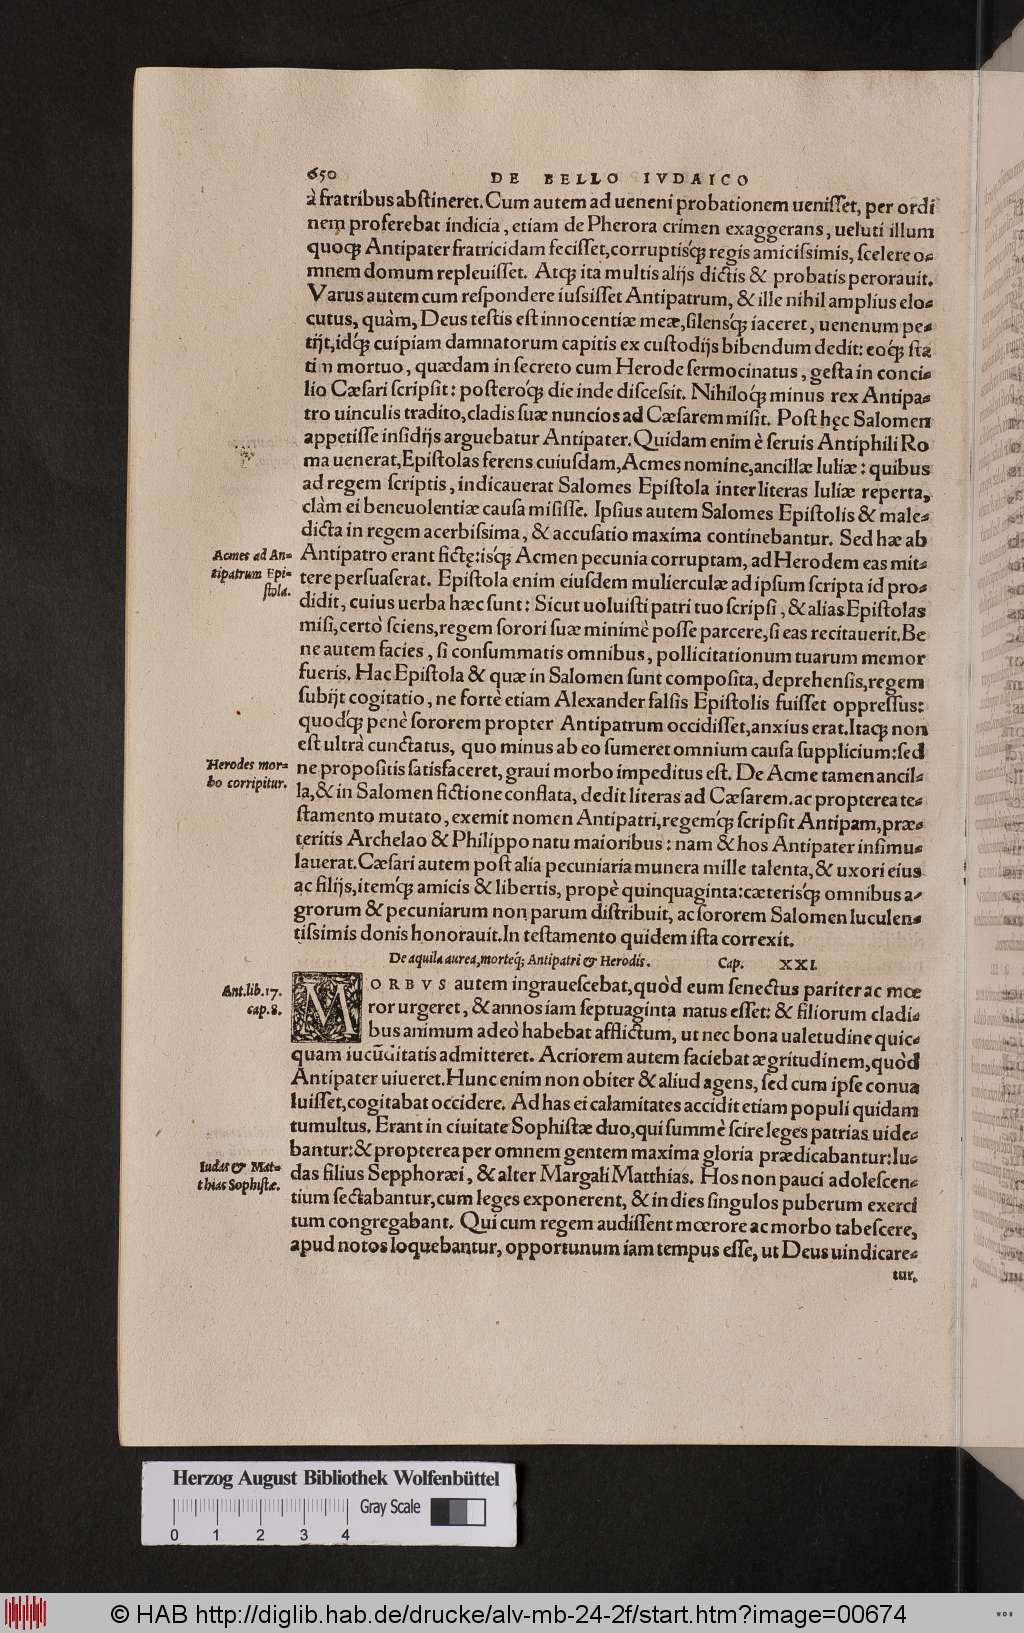 650 DE BELLO IVDAICO
à fratribus abstineret. Cum autem ad ueneni probationem uenisset, per ordi
nem proferebat indicia, etiam de Pherora crimen exaggerans, ueluti illum
quoqꝫ Antipater fratricidam fecisset, corruptisq́ꝫ regis amicissimis, scelere o-
mnem domum repleuisset. Atqꝫ ita multis alijs dictis & probatis perorauit.
Varus autem cum respondere iussisset Antipatrum, & ille nihil amplius elo-
cutus, quàm, Deus testis est innocentiæ meæ, silensq́ꝫ iaceret, uenenum pe-
tijt, idq́ꝫ cuipiam damnatorum capitis ex custodijs bibendum dedit: eoq́ꝫ sta
tim mortuo, quædam in secreto cum Herode sermocinatus, gesta in conci-
lio Cæsari scripsit: posteroq́ꝫ die inde discessit. Nihiloq́ꝫ minus rex Antipa-
tro uinculis tradito, cladis suæ nuncios ad Cæsarem misit. Post hęc Salomen
appetisse insidijs arguebatur Antipater. Quidam enim è seruis Antiphili Ro
ma uenerat, Epistolas ferens cuiusdam, Acmes nomine, ancillæ Iuliæ: quibus
ad regem scriptis, indicauerat Salomes Epistola inter literas Iuliæ reperta,
clàm ei beneuolentiæ causa misisse. Ipsius autem Salomes Epistolis & male-
dicta in regem acerbissima, & accusatio maxima continebantur. Sed hæ ab
Acmes ad An-
tipatrum Epi-
stola.
Antipatro erant fictę: isq́ꝫ Acmen pecunia corruptam, ad Herodem eas mit-
tere persuaserat. Epistola enim eiusdem mulierculæ ad ipsum scripta id pro-
didit, cuius uerba hæc sunt: Sicut uoluisti patri tuo scripsi, & alias Epistolas
misi, certò sciens, regem sorori suæ minimè posse parcere, si eas recitauerit. Be
ne autem facies, si consummatis omnibus, pollicitationum tuarum memor
fueris. Hac Epistola & quæ in Salomen sunt composita, deprehensis, regem
subijt cogitatio, ne fortè etiam Alexander falsis Epistolis fuisset oppressus:
quodq́ꝫ penè sororem propter Antipatrum occidisset, anxius erat. Itaqꝫ non
est ultrà cunctatus, quo minus ab eo sumeret omnium causa supplicium: sed
Herodes mor-
bo corripitur.
ne propositis satisfaceret, graui morbo impeditus est. De Acme tamen ancil-
la, & in Salomen fictione conflata, dedit literas ad Cæsarem. ac propterea te-
stamento mutato, exemit nomen Antipatri, regemq́ꝫ scripsit Antipam, præ-
teritis Archelao & Philippo natu maioribus: nam & hos Antipater insimu-
lauerat. Cæsari autem post alia pecuniaria munera mille talenta, & uxori eius
ac filijs, itemq́ꝫ amicis & libertis, propè quinquaginta: cæterisq́ꝫ omnibus a-
grorum & pecuniarum non parum distribuit, ac sororem Salomen luculen-
tissimis donis honorauit. In testamento quidem ista correxit.
De aquila aurea, morteq́; Antipatri & Herodis. Cap. XXI.
Ant. lib. 17.
cap. 8.
MORBVS autem ingrauescebat, quòd eum senectus pariter ac mœ
ror urgeret, & annos iam septuaginta natus esset: & filiorum cladi-
bus animum adeò habebat afflictum, ut nec bona ualetudine quic-
quam iucũditatis admitteret. Acriorem autem faciebat ægritudinem, quòd
Antipater uiueret. Hunc enim non obiter & aliud agens, sed cum ipse conua
luisset, cogitabat occidere. Ad has ei calamitates accidit etiam populi quidam
tumultus. Erant in ciuitate Sophistæ duo, qui summè scire leges patrias uide-
bantur: & propterea per omnem gentem maxima gloria prædicabantur: Iu-
Iudas & Mat-
thias Sophistæ.
das filius Sepphoræi, & alter Margali Matthias. Hos non pauci adolescen-
tium sectabantur, cum leges exponerent, & in dies singulos puberum exerci
tum congregabant. Qui cum regem audissent mœrore ac morbo tabescere,
apud notos loquebantur, opportunum iam tempus esse, ut Deus uindicare-
tur,
Herzog August Bibliothek Wolfenbüttel
Gray Scale
0 1 2 3 4
© HAB http://diglib.hab.de/drucke/alv-mb-24-2f/start.htm?image=00674